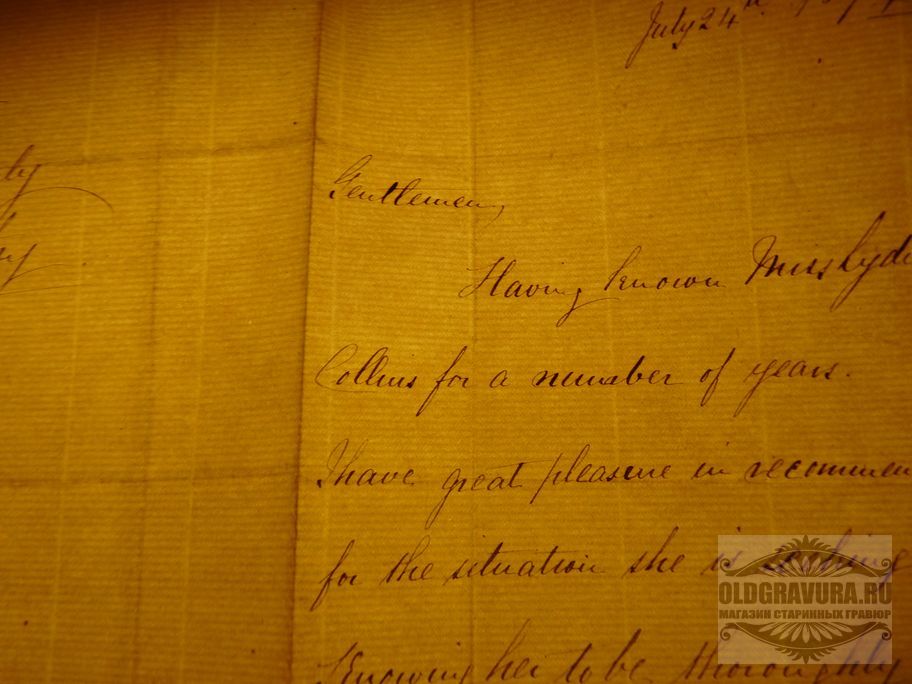 July 24th
Gentlemen,
Having known Miss Lyd
Collins for a number of years.
I have great pleasure in recommen
for the situation she is seeking
Knowing her to be thoroughly
OLDGRAVURA.RU
МАГАЗИН СТАРИННЫХ ГРАВЮР